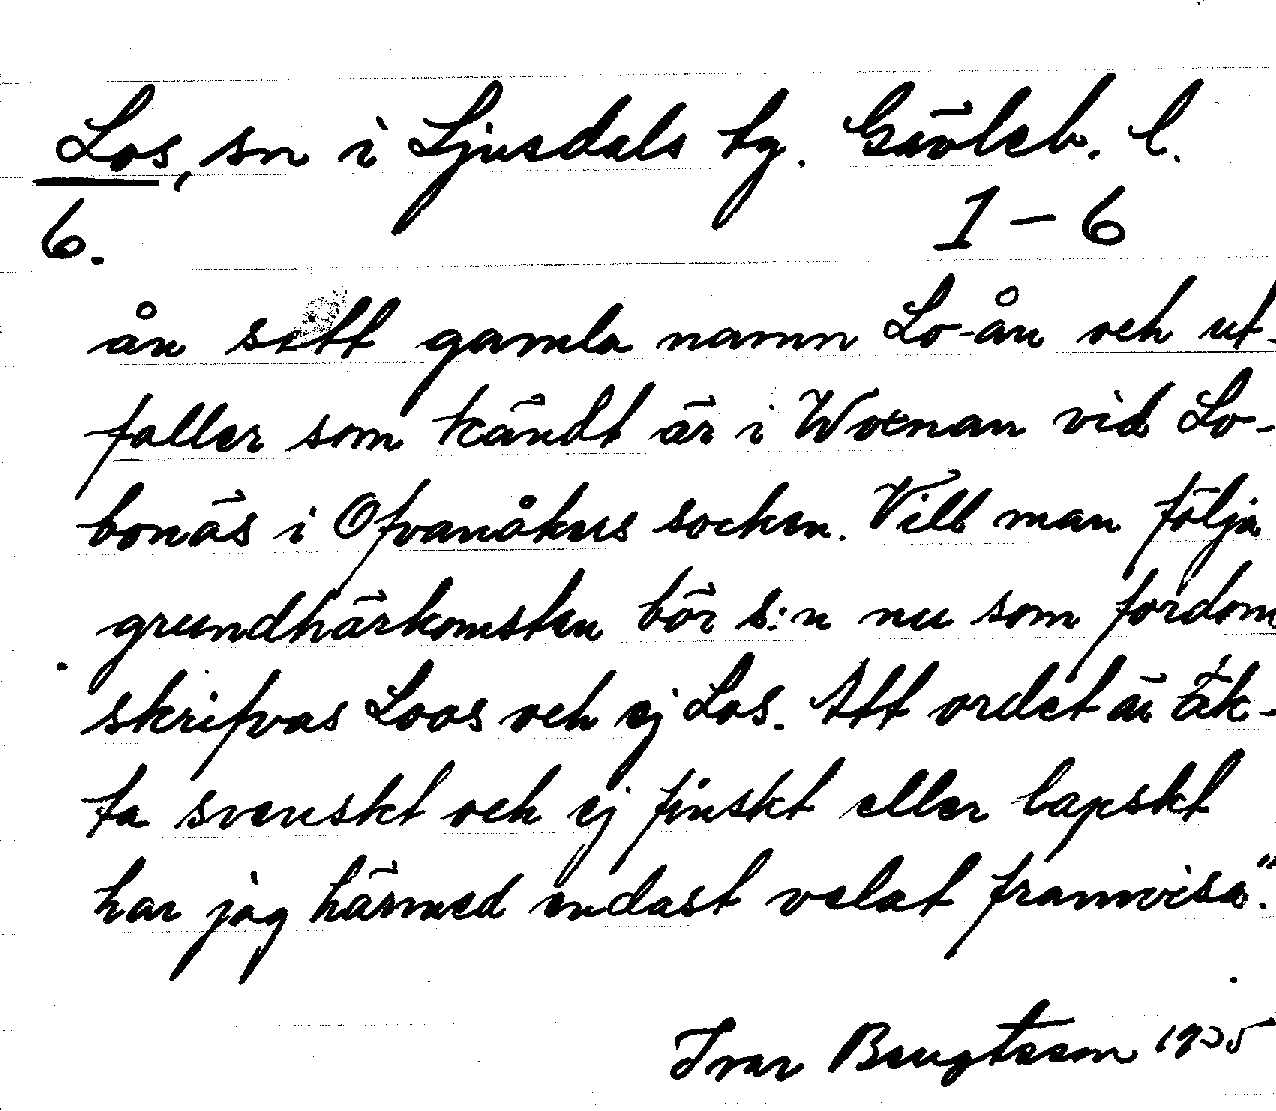 Los, sn i Ljusdals tg. Gävleb. l.
6. 1-6
ån sitt gamla namn Lo-ån och ut-
faller som kändt är i Woxnan vid Lo-
bonäs i Ofvanåkers socken. Vill man följa
grundhärkomsten bör s:n nu som fordom
skrifvas Loos och ej Los. Att ordet är äk-
ta svenskt och ej finskt eller lapskt
har jag härmed endast velat framvisa".
Ivar Bengtsson